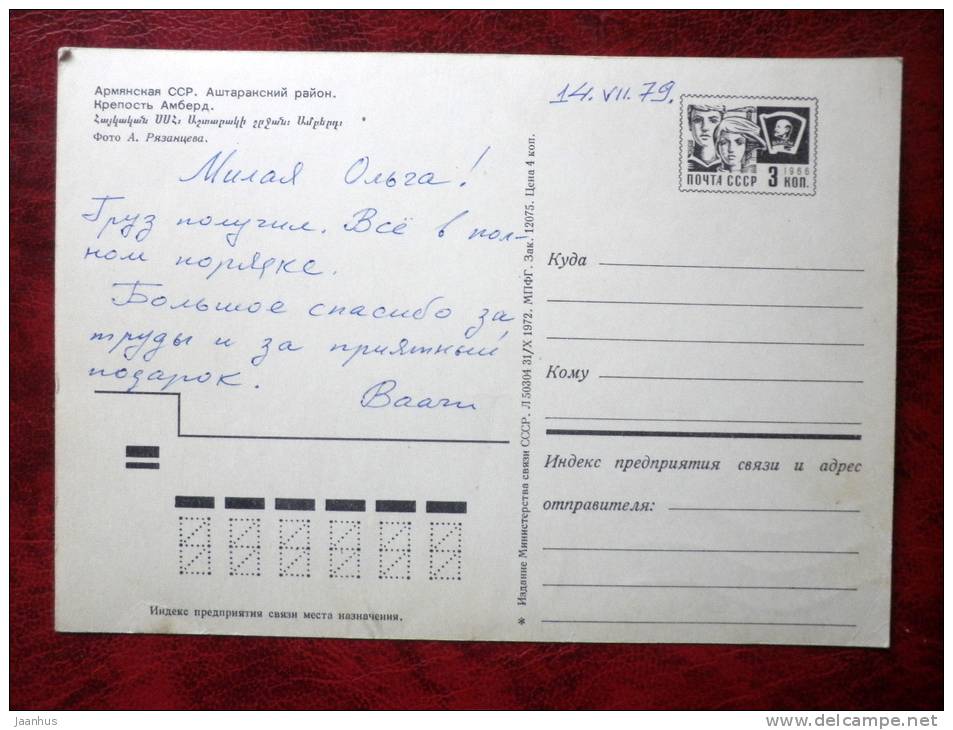 Армянская ССР. Аштаракский район.
Крепость Амберд.
Հայկական ՍՍՀ: Աշտարակի շրջան: Ամբերդ:
Фото А. Рязанцева.
14.VII.79.
Милая Ольга!
Груз получил. Всё в пол-
ном порядке.
Большое спасибо за
труды и за приятный
подарок.
ПОЧТА СССР 3 КОП.
1966
Куда
Кому
Индекс предприятия связи и адрес
отправителя:
* Издание Министерства связи СССР. Л 50304 31/X 1972. МПФГ. Зак. 12075. Цена 4 коп.
Индекс предприятия связи места назначения.
jaanhus
www.delcampe.net